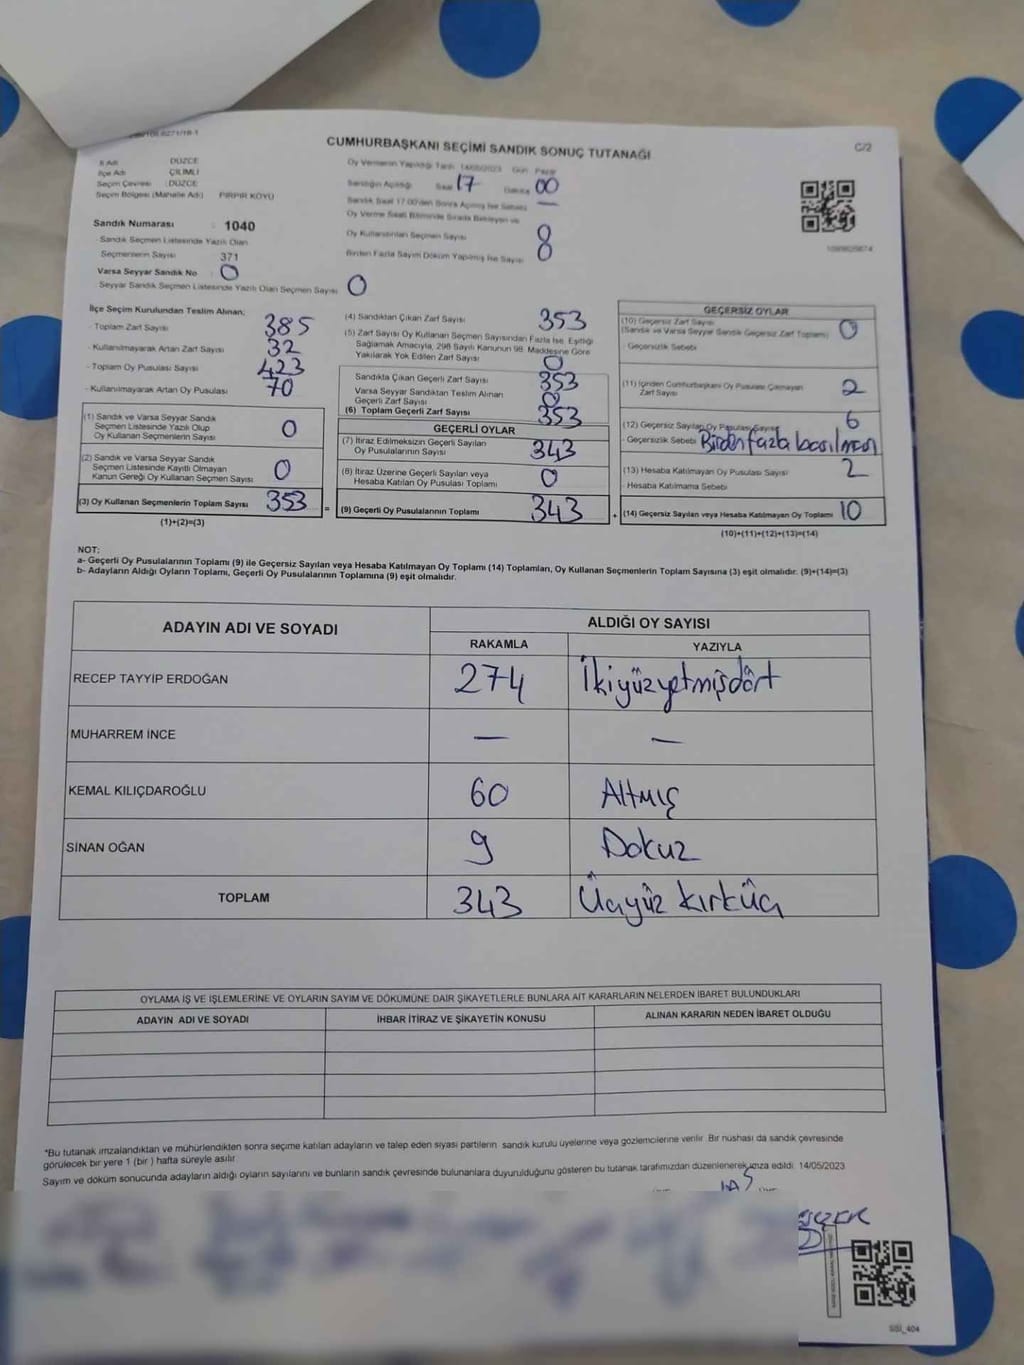 CUMHURBAŞKANI SEÇİMİ SANDIK SONUÇ TUTANAĞI
C/2
İl Adı DÜZCE
İlçe Adı ÇİLİMLİ
Seçim Çevresi : DÜZCE
Seçim Bölgesi (Mahalle Adı) PIRPIR KÖYÜ
Sandık Numarası : 1040
Sandık Seçmen Listesinde Yazılı Olan
Seçmenlerin Sayısı 371
Varsa Seyyar Sandık No : 0
Seyyar Sandık Seçmen Listesinde Yazılı Olan Seçmen Sayısı 0
Oy Vermenin Yapıldığı Tarih 14/05/2023 Gün Pazar
Sandığın Açıldığı Saat 17 Dakika 00
Sandık Saat 17:00'den Sonra Açılmış İse Sebebi —
Oy Verme Saati Bitiminde Sırada Bekleyen ve
Oy Kullandırılan Seçmen Sayısı 8
Birden Fazla Sayım Döküm Yapılmış İse Sayısı
İlçe Seçim Kurulundan Teslim Alınan;
- Toplam Zarf Sayısı 385
- Kullanılmayarak Artan Zarf Sayısı 32
- Toplam Oy Pusulası Sayısı 423
- Kullanılmayarak Artan Oy Pusulası 70
(1) Sandık ve Varsa Seyyar Sandık
Seçmen Listesinde Yazılı Olup
Oy Kullanan Seçmenlerin Sayısı 0
(2) Sandık ve Varsa Seyyar Sandık
Seçmen Listesinde Kayıtlı Olmayan
Kanun Gereği Oy Kullanan Seçmen Sayısı 0
(3) Oy Kullanan Seçmenlerin Toplam Sayısı 353
(1)+(2)=(3)
(4) Sandıktan Çıkan Zarf Sayısı 353
(5) Zarf Sayısı Oy Kullanan Seçmen Sayısından Fazla İse, Eşitliği
Sağlamak Amacıyla, 298 Sayılı Kanunun 98. Maddesine Göre
Yakılarak Yok Edilen Zarf Sayısı 0
Sandıkta Çıkan Geçerli Zarf Sayısı 353
Varsa Seyyar Sandıktan Teslim Alınan
Geçerli Zarf Sayısı 0
(6) Toplam Geçerli Zarf Sayısı 353
GEÇERLİ OYLAR
(7) İtiraz Edilmeksizin Geçerli Sayılan
Oy Pusulalarının Sayısı 343
(8) İtiraz Üzerine Geçerli Sayılan veya
Hesaba Katılan Oy Pusulası Toplamı 0
= (9) Geçerli Oy Pusulalarının Toplamı 343
GEÇERSİZ OYLAR
(10) Geçersiz Zarf Sayısı
(Sandık ve Varsa Seyyar Sandık Geçersiz Zarf Toplamı) 0
- Geçersizlik Sebebi
(11) İçinden Cumhurbaşkanı Oy Pusulası Çıkmayan
Zarf Sayısı 2
(12) Geçersiz Sayılan Oy Pusulası Sayısı 6
- Geçersizlik Sebebi Birden fazla basılması
(13) Hesaba Katılmayan Oy Pusulası Sayısı 2
- Hesaba Katılmama Sebebi
+ (14) Geçersiz Sayılan veya Hesaba Katılmayan Oy Toplamı 10
(10)+(11)+(12)+(13)=(14)
NOT:
a- Geçerli Oy Pusulalarının Toplamı (9) ile Geçersiz Sayılan veya Hesaba Katılmayan Oy Toplamı (14) Toplamları, Oy Kullanan Seçmenlerin Toplam Sayısına (3) eşit olmalıdır. (9)+(14)=(3)
b- Adayların Aldığı Oyların Toplamı, Geçerli Oy Pusulalarının Toplamına (9) eşit olmalıdır.
ADAYIN ADI VE SOYADI ALDIĞI OY SAYISI
RAKAMLA YAZIYLA
RECEP TAYYIP ERDOĞAN 274 İkiyüzyetmişdört
MUHARREM İNCE — —
KEMAL KILIÇDAROĞLU 60 Altmış
SİNAN OĞAN 9 Dokuz
TOPLAM 343 Üçyüz kırküç
OYLAMA İŞ VE İŞLEMLERİNE VE OYLARIN SAYIM VE DÖKÜMÜNE DAİR ŞİKAYETLERLE BUNLARA AİT KARARLARIN NELERDEN İBARET BULUNDUKLARI
ADAYIN ADI VE SOYADI İHBAR İTİRAZ VE ŞİKAYETİN KONUSU ALINAN KARARIN NEDEN İBARET OLDUĞU
*Bu tutanak imzalandıktan ve mühürlendikten sonra seçime katılan adayların ve talep eden siyasi partilerin sandık kurulu üyelerine veya gözlemcilerine verilir. Bir nüshası da sandık çevresinde
görülecek bir yere 1 (bir) hafta süreyle asılır.
Sayım ve döküm sonucunda adayların aldığı oyların sayılarını ve bunların sandık çevresinde bulunanlara duyurulduğunu gösteren bu tutanak tarafımızdan düzenlenerek imza edildi. 14/05/2023